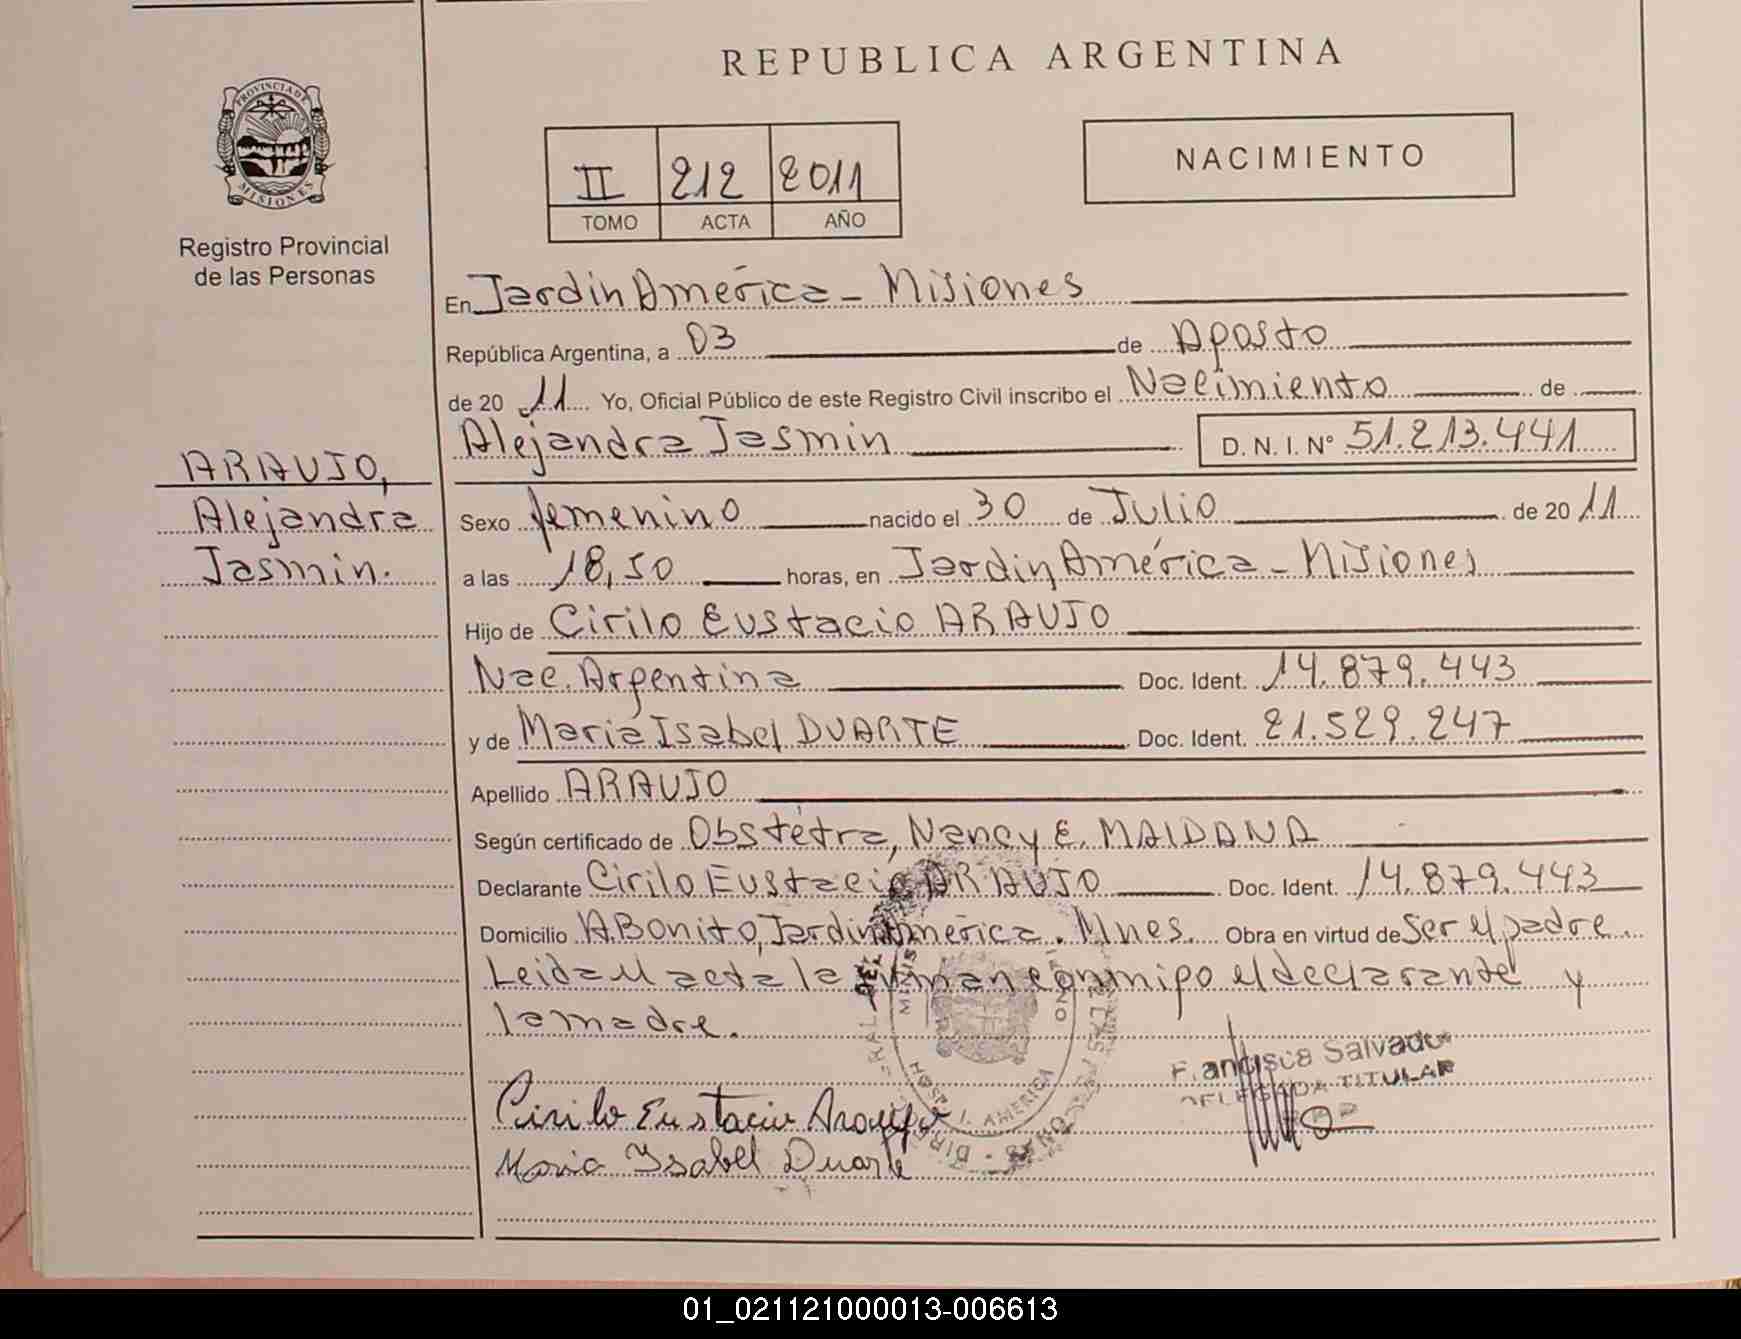 REPUBLICA ARGENTINA
PROVINCIA DE MISIONES
Registro Provincial
de las Personas
II 212 2011
TOMO ACTA AÑO
NACIMIENTO
En Jardín América - Misiones
República Argentina, a 03 de Agosto
de 20 11 Yo, Oficial Público de este Registro Civil inscribo el Nacimiento de
Alejandra Jasmin D. N. I. N° 51.213.441
ARAUJO,
Alejandra
Jasmin.
Sexo femenino nacido el 30 de Julio de 20 11
a las 18,50 horas, en Jardin América - Misiones
Hijo de Cirilo Eustacio ARAUJO
Nac. Argentina Doc. Ident. 14.879.443
y de Maria Isabel DUARTE Doc. Ident. 21.529.247
Apellido ARAUJO
Según certificado de Obstétra, Nancy E. MAIDANA
Declarante Cirilo Eustacio ARAUJO Doc. Ident. 14.879.443
Domicilio A. Bonito, Jardin América. Mnes. Obra en virtud de Ser el padre.
Leida el acta la firman conmigo el declarante y
la madre.
Francisca Salvador
DELEGADA TITULAR
Cirilo Eustaciu Araujo
Maria Ysabel Duarte
01_021121000013-006613